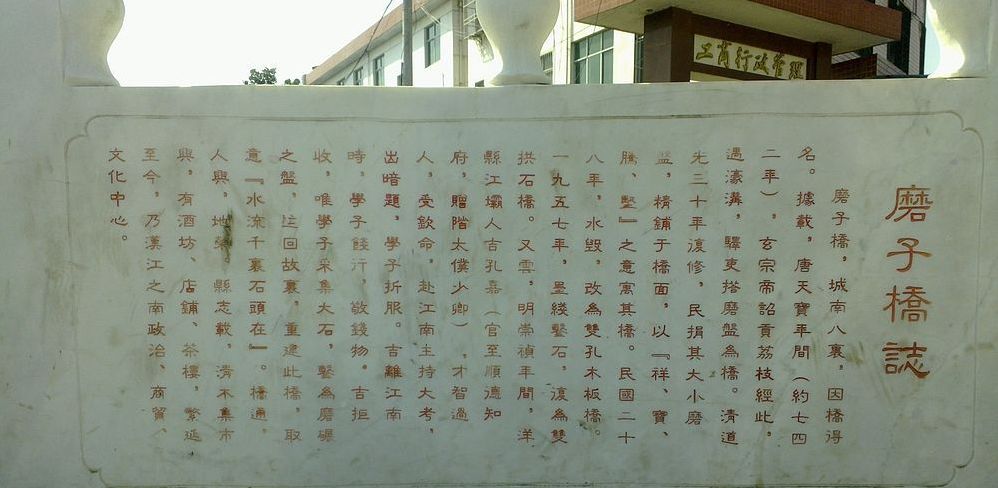 工商行政管理
磨子橋誌
磨子橋,城南八裏,因橋得
名。據載,唐天寶年間(約七四
二年),玄宗帝詔貢荔枝經此,
遇濠溝,驛吏搭磨盤為橋。清道
光三十年復修,民捐其大小磨
盤,精鋪于橋面,以『祥、寶、
騰、』之意寓其橋。民國二十
八年,水毀,改為雙孔木板橋。
一九五七年,墨綫鏨石,復為雙
拱石橋。又雲,明崇禎年間,洋
縣江壩人吉孔嘉(官至順德知
府,贈階太僕少卿),才智過
人,受欽命,赴江南主持大考,
出暗題,學子折服。吉離江南
時,學子餞行,敬錢物。吉拒
收,唯學子采集大石,鏨為磨碾
之盤,回故裏,重建此橋,取
意『水流千裏石頭在』。橋通,
人興,地,縣志載,清末集市
興,有酒坊、店鋪、茶樓,繁延
至今,乃漢江之南政治、商貿、
文化中心。